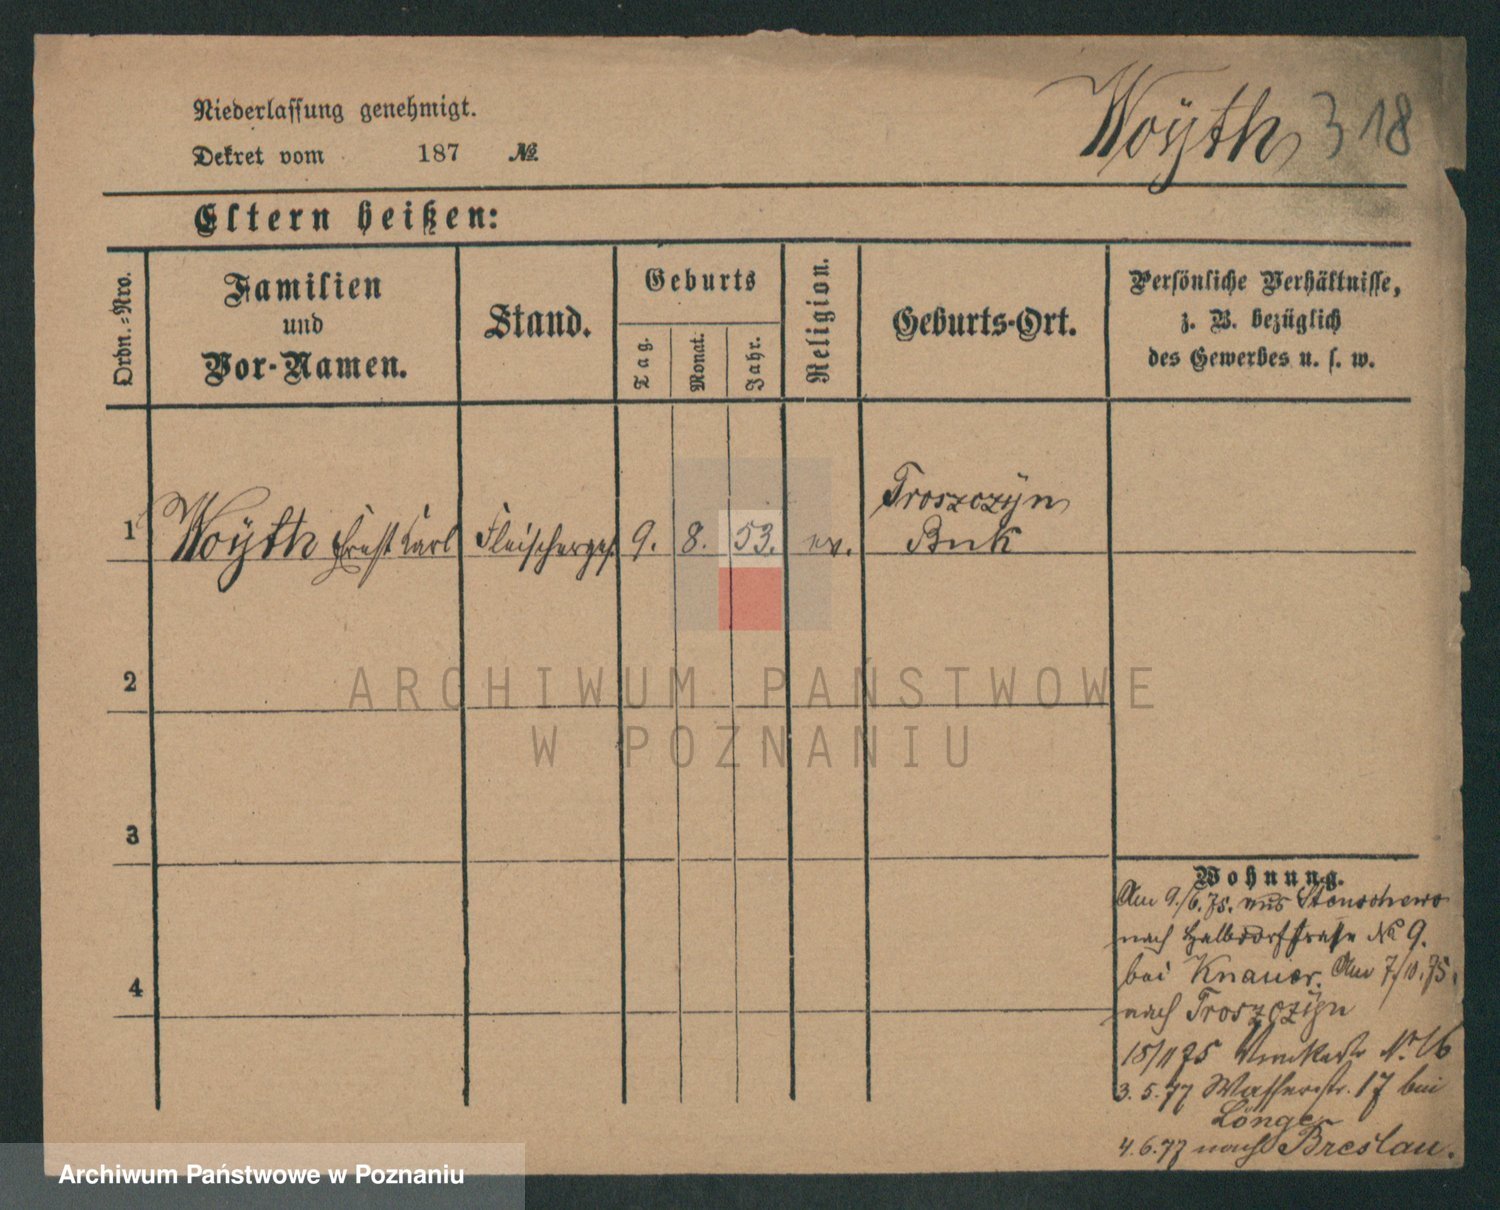 Woÿth 318
Niederlassung genehmigt.
Dekret vom 187 №
Eltern heißen:
Ordn.=Nro.
Familien
und
Vor-Namen.
Stand.
Geburts
Tag.
Monat.
Jahr.
Religion.
Geburts-Ort.
Persönliche Verhältnisse,
z. B. bezüglich
des Gewerbes u. s. w.
Troszczÿn
1 Woÿth Ernst Carl Fleischerges. 9. 8. 53. ev. Buk
2
3
4
Wohnung.
Am 9./6.75. aus Stenschewo
nach Halbdorfstraße № 9.
bei Knauer. Am 7/10.75.
nach Troszczÿn
15/11 75 No. 16
3.5.77 Wasserstr. 17 bei
Lönger
4.6.77 nach Breslau.
ARCHIWUM PAŃSTWOWE
W POZNANIU
Archiwum Państwowe w Poznaniu